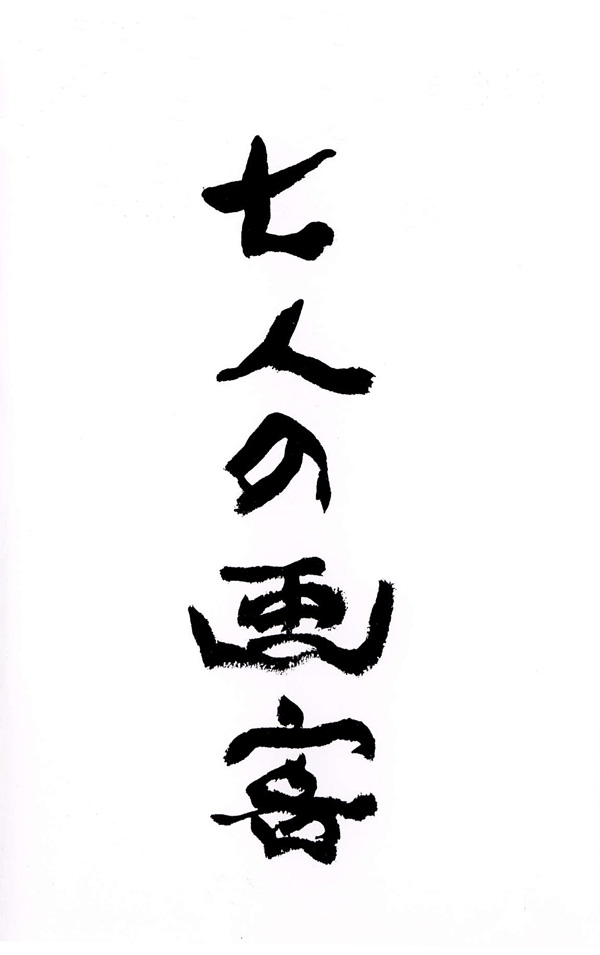 七人の画客